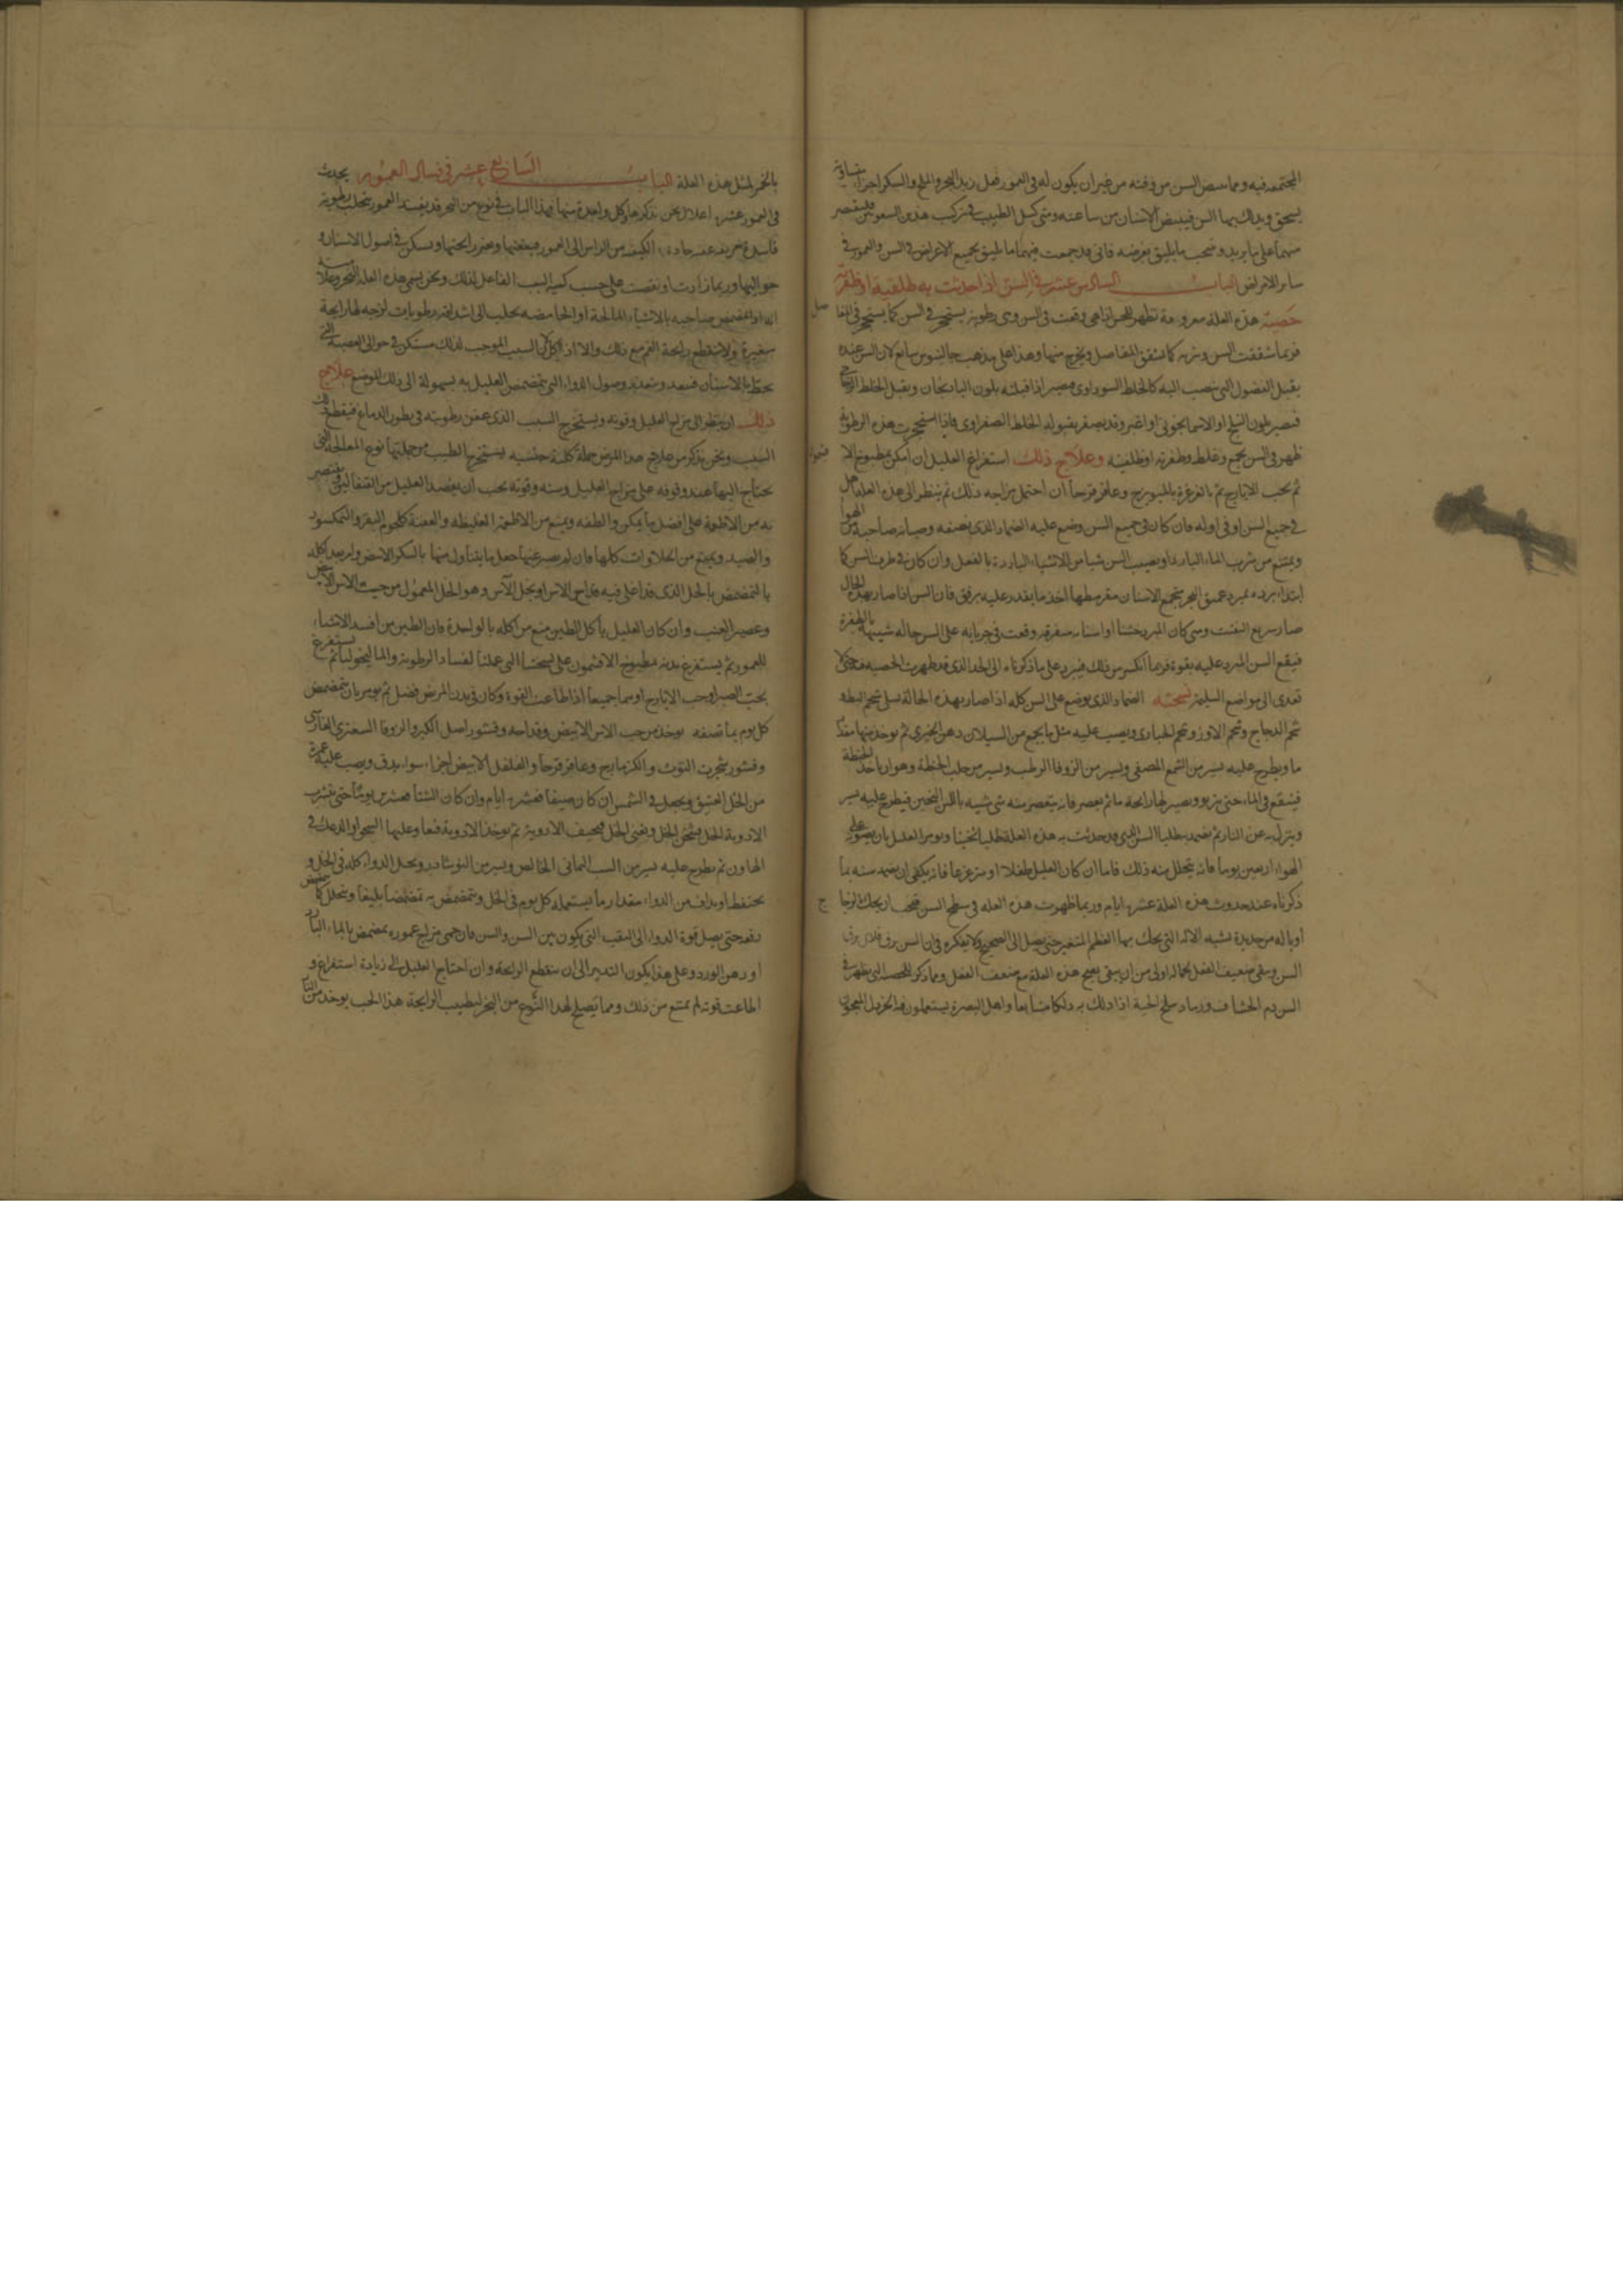 المجتمعة فيه ومما يبيض السن من وقته من غير ان يكون له في العمور فعل زبد البحر والملح والسكر اجزا متساوية
يسحق ويدلك بها السن فيبيض الاسنان من ساعته ومتى كسل الطبيب في تركيب هذين السفوفين فليقتصر
منهما على ما يريد وبحسب ما يليق بغرضه فاني قد جمعت فيهما ما يليق بجميع الاعراض في السن والعمور في
ساير الامراض الباب السادس عشر في السن اذا حدثت به
هذه العلة معروفة تظهر للحس اذا هي وقعت في السن وهي رطوبة يستحجر في السن كما يستحجر في المفا صل
فربما شققت السن وتربه كما تشقق المفاصل ويخرج منها وهذا على مذهب جالينوس سايغ لان السن عنده
يقبل الفضول التي تنصب اليه كالخلط السوداوي فيصير اذا قبلته بلون الباذنجان ويقبل الخلط
فيصير بلون النيلج او الاسمانجوني او اغبر وقد يصفر بقبوله الخلط الصفراوي فاذا استحجرت هذه الرطوبة
ظهر في السن وعلاج ذلك استفراغ العليل ان امكن بمطبوخ الا
ثم بحب الايارج ثم بالغرغرة بالميويزج وعاقرقرحا ان احتمل مزاجه ذلك ثم ينظر الى هذه العلة هل
في جميع السن او في اوله فان كان في جميع السن وضع عليه الضماد الذي نصفه وصيانة صاحبه من الهوا
ويمتنع من شرب الماء البارد او يصيب السن شيا من الاشياء الباردة بالفعل وان كان في طرف السن كما
فان السن اذا صار بهذه الحال
صار سريع التفتت ومتى كان المبرد خشنا
فيقع السن المبرد عليه بقوة فربما انكسر من ذلك فيبرد على ما ذكرناه الى الحد الذي قد ظهرت الحصبه
تعدى الى مواضع السليمة نسخته الضماد الذي يوضع على السن كله اذا صار بهذه الحالة
شحم الدجاج وشحم الاوز وشحم الحباري ويصب عليه مثل ما يجمع من السيلان دهن الخيري ثم يوخذ منها مقدا
ما ويطرح عليه يسير من الشمع المصفى ويسير من الزوفا الرطب ويسير من حلب الحنطة وهو ان ياخذ الحنطة
فينقع في الماء حتى تربو ويصير لها رايحة ما ثم يعصر فانه يتعصر منه شي شبيه باللبن الثخين فيطرح عليه يسير
وينزل به عن النار ثم يضمد السن الذي قد حدثت به هذه العلة طليا ثخينا ويومر العليل بان
الهواء اربعين يوما فانه يتحلل منه ذلك فاما ان كان العليل طفلا او مترعرعا فانه يكفي ان يضمد سنه بما
ذكرناه عند حدوث هذه العلة عشرة ايام وربما ظهرت هذه العله في سطح السن
او بالة من حديدة تشبه الالة التي يحك بها العظم المتغير حتى يصل الى الصحيح
السن ويبقى ضعيف الفعل بحماله اولى من ان يبقى بقبح هذه العلة مع ضعف الفعل
السن دم الخشاف ورماد سلخ الحية اذا دلك به دلكا متتابعا واهل البصرة يستعملون فيه الخردل المعجون
بالخمر لمثل هذه العلة الباب السابع عشر في فساد العمور يحدث
في العمور عشرة اعلال نحن نذكرها وكل واحدة منها فهذا الباب في نوع من البخر قد يفسد العمور بتحلب رطوبة
فاسدة حريفة عفنة حادة الكيفية من الراس الى العمور فيعفنها وتغير رايحتها ويسكن في اصول الاسنان و
حواليها وربما زادت او نقصت على حسب كمية السبب الفاعل لذلك ونحن نسمي هذه العلة البخر
تمضمض صاحبه بالاشياء المالحة او الحامضه رطوبات لزجه لها رايحة
ولا تنقطع رايحة الفم مع ذلك السبب الموجب لذلك مستكن في حوالي العصبة التي
تحيط بالاسنان وصول الدواء الذي يتمضمض العليل به بسهولة الى ذلك الموضع علاج
ذلك ان ينظر الى مزاج العليل وقوته ويستخرج السبب الذي عفن رطوبته في بطون الدماغ فيقطع ذلك
السبب ونحن نذكر من علاج هذا المرض جملة كلية جنسيه يستخرج الطبيب من جملتها نوع المعالجة التي
يحتاج اليها عند وقوفه على مزاج العليل وسنه وقوته يجب ان يفصد العليل من القيفالين ويقتصر
به من الاطعمة على افضل ما يمكن والطفه ويمنع من الاطعمة الغليظة والعفنة كلحوم البقر والنمكسود
والصيد ويمنع من الحلاوات كلها فان لم يصبر عنها جعل ما يتناول منها بالسكر الابيض وامر بعد اكله
بالتمضمض بالخل الذي قد اغلي فيه الاس او بخل الآس وهو الخل المعمول من حب الاس الابيض
وعصير العنب وان كان العليل ياكل الطين منع من اكله بالواحدة فان الطين من افسد الاشياء
للعمور ثم يستفرغ بدنه بمطبوخ الافثيمون على نسختنا التي عملنا لفساد الرطوبة والماليخوليا ثم يستفرغ
بحب الصبر او حب الايارج او بهما جميعا اذا طاعت القوة وكان في بدن المرض فضل ثم يومر بان يتمضمض
كل يوم بما نصفه يوخذ من حب الاس الابيض وقداحه وقشور اصل الكبر والزوفا السعتري الفارسي
وقشور شجرة التوت والكزمازج وعاقرقرحا والفلفل الابيض اجزاء سواء يدق ويصب عليه غمره
من الخل العتيق ويجعل في الشمس ان كان صيفا فعشرة ايام وان كان الشتا فعشرين يوما حتى تشرب
الادوية الخل ويفنى الخل ويجف الادوية ثم يوخذ الادوية فيعاد عليها السحق او الدعك في
الهاون ثم يطرح عليه يسير من الشب اليماني الخالص ويسير من النوشادر ويحل الدواء كله في الخل و
يحتفظ او يداف من الدواء مقدار ما يستعمله كل يوم في الخل ويتمضمض به تمضمضا بليغا
دفعة حتى يصل قوة الدواء الى الثقب التي تكون بين السن والسن فان حمي مزاج عموره تمضمض بالماء البارد
او دهن الورد وعلى هذا يكون التدبير الى ان تنقطع الرايحة وان احتاج العليل الى زيادة استفراغ و
اطاعت قوته لم يمنع من ذلك ومما يصلح لهذا النوع من البخر لطيب الرايحة هذا الحب يوخذ من